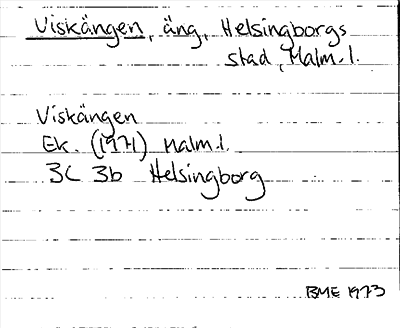 Viskängen, äng, Helsingborgs
stad, Malm.l.
Viskängen
Ek. (1971) Malm.l.
3C 3b Helsingborg
BME 1973